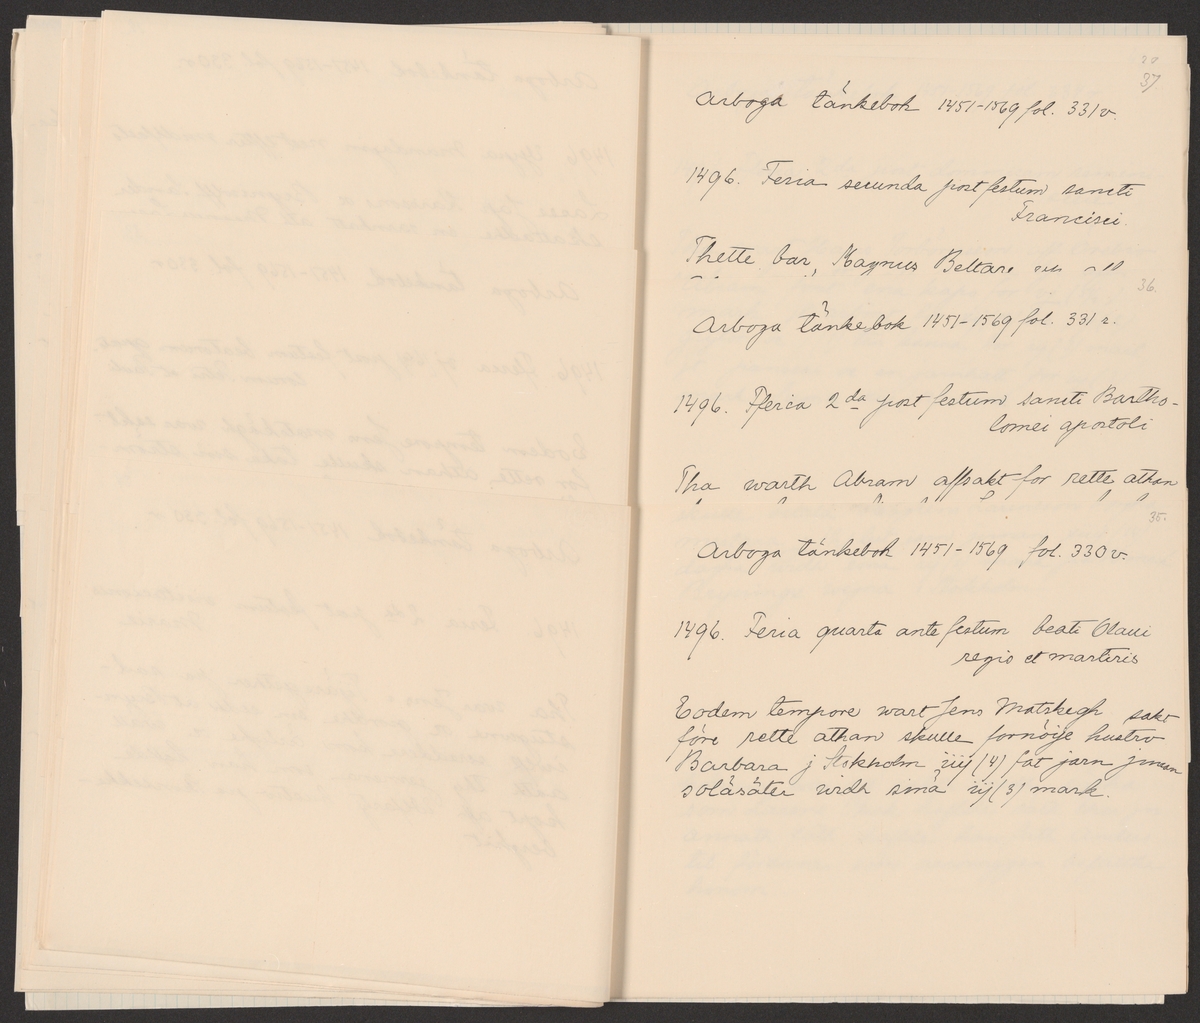 37
Arboga tänkebok 1451-1569 fol. 331 v.
1496. Feria secunda post festum sancti
Francisci.
Thette bar, Magnus Beltare
36.
Arboga tänkebok 1451-1569 fol. 331 r.
1496. Fferia 2da post festum sancti Bartho-
lomei apostoli
Tha warth Abram affsakt for rette athan
35.
Arboga tänkebok 1451-1569 fol. 330 v.
1496. Feria quarta ante festum beati Olaui
regis et martiris
Eodem tempore wart Jens Matskegh sakt
före rette athan skulle fornöije hustro
Barbara j Stokholm iiij (4) fat jarn jnnan
soläsäter widh sina iij (3) mark.